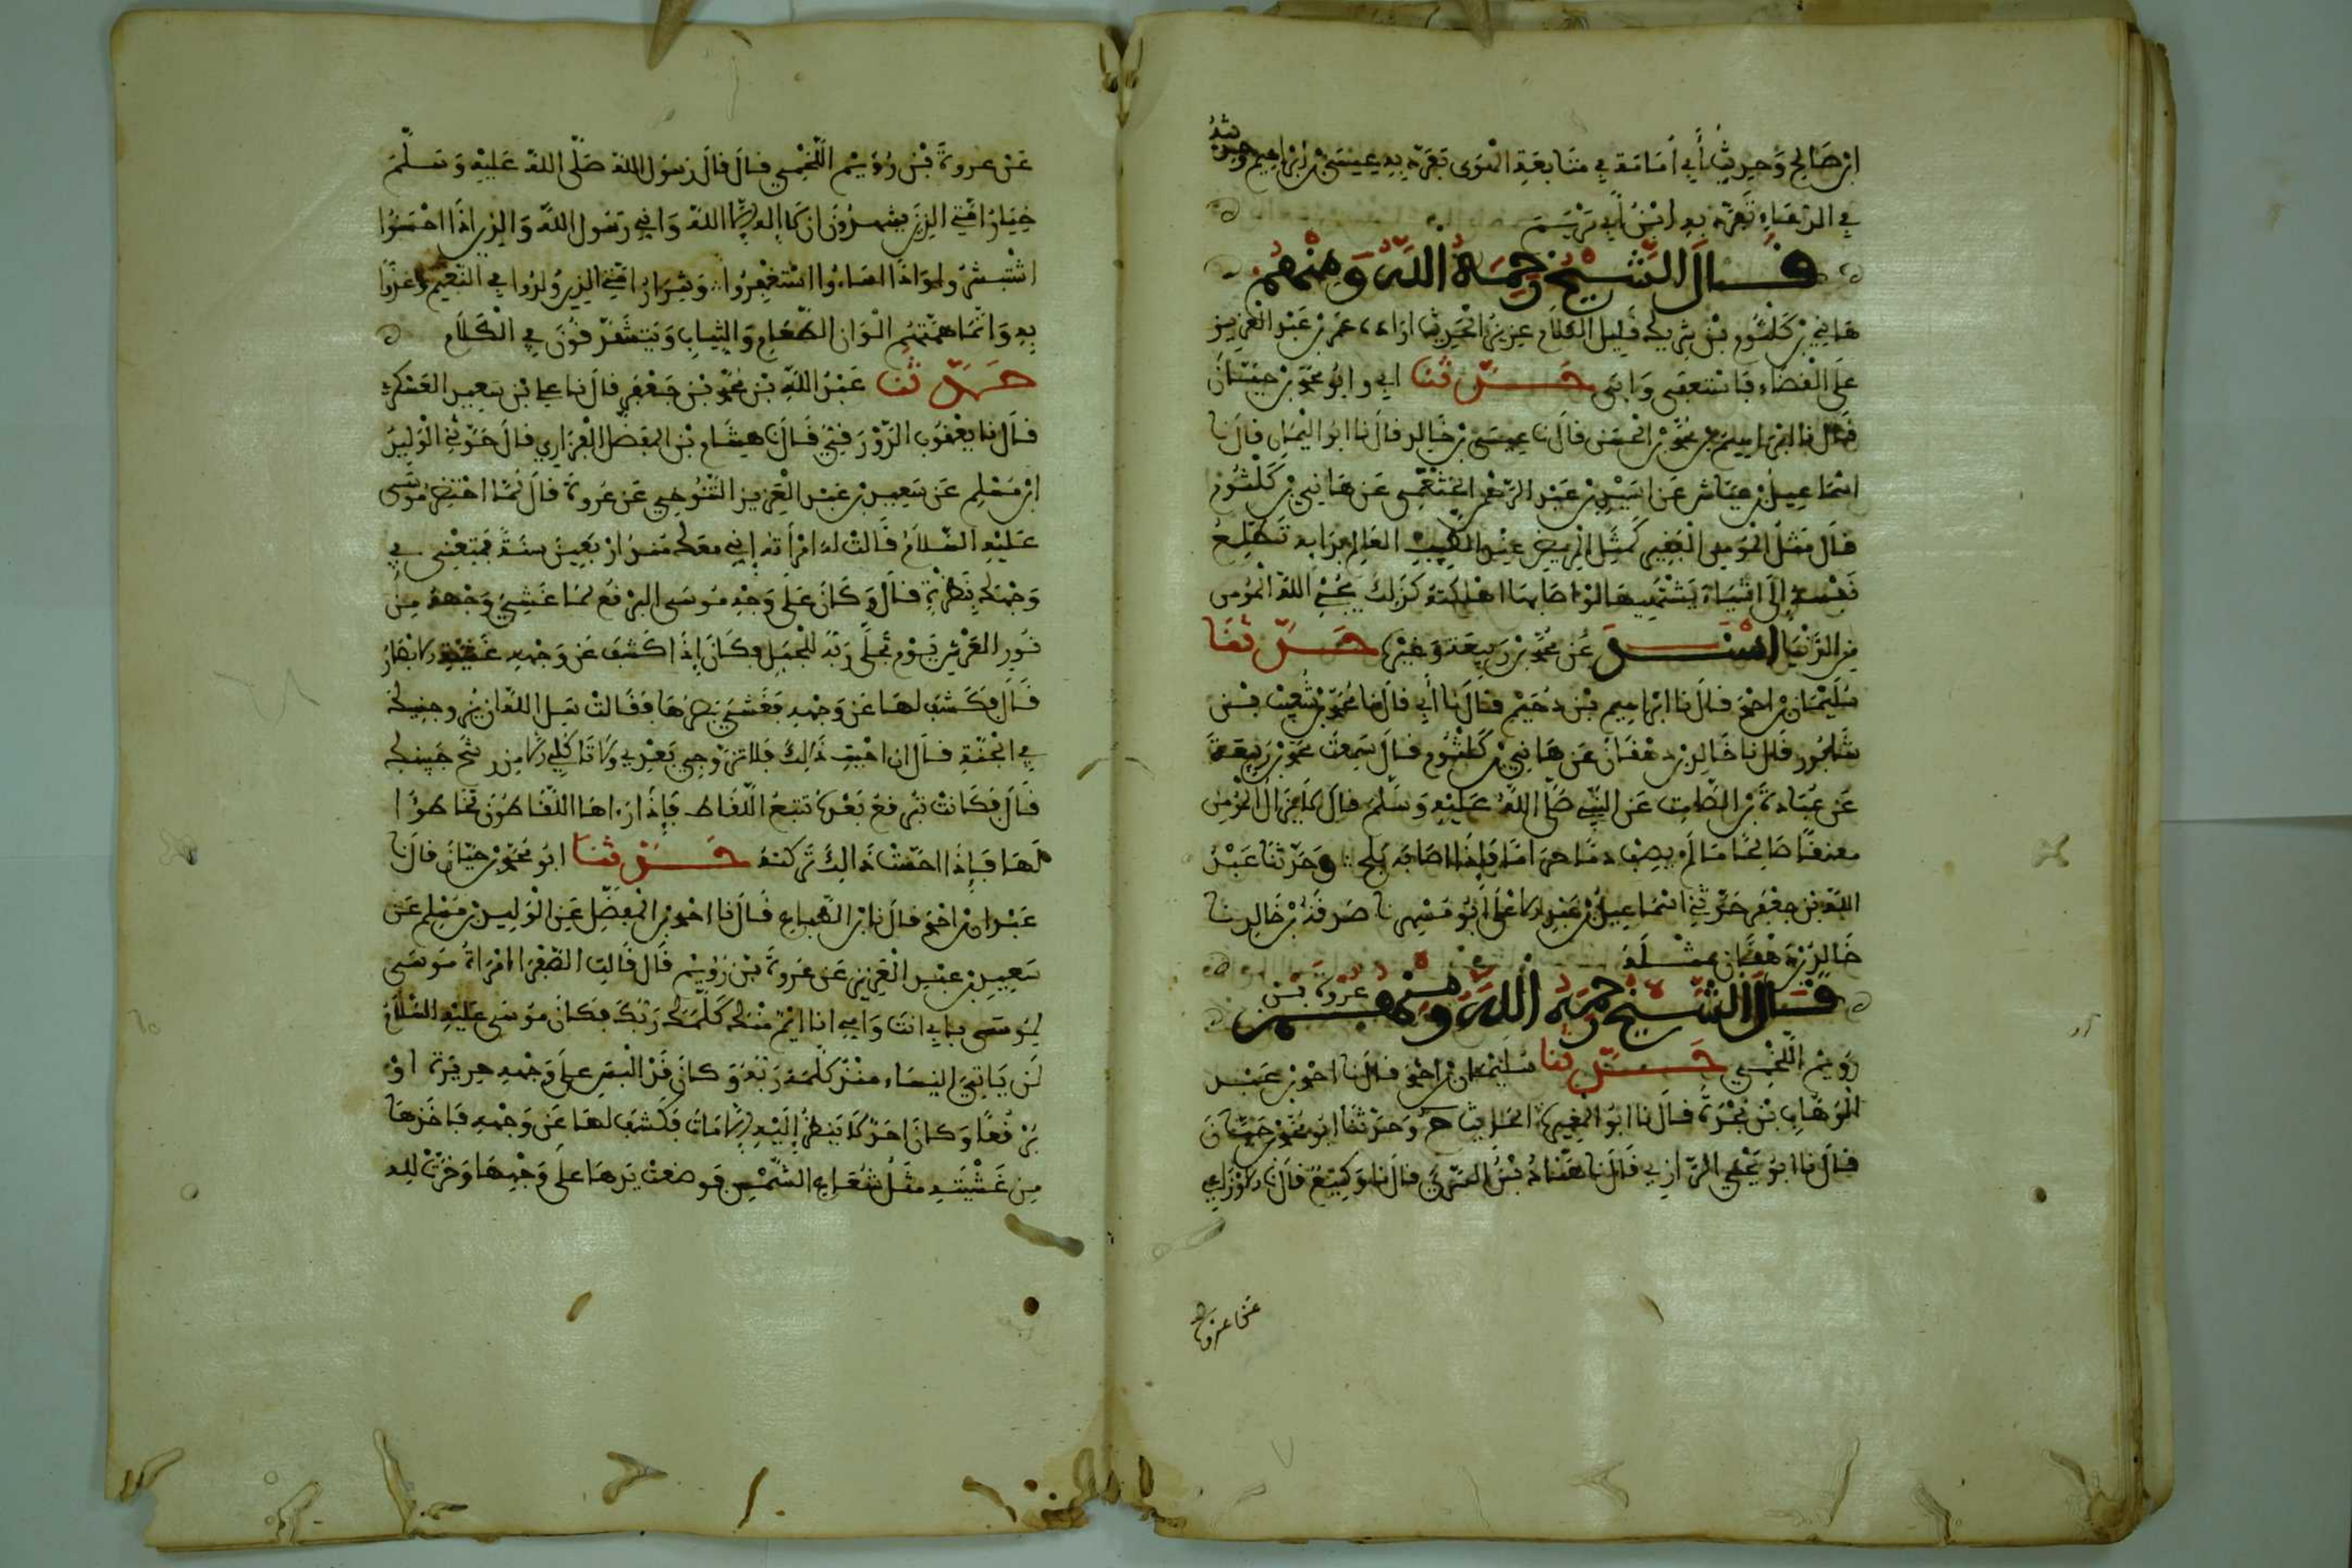 ابن صالح وحديث أبي أمامة في متابعة تفرد به عيسى بن ابراهيم وحديثه
في الدعاء تفرد به ابن أبي مريم
قال الشيخ رحمة الله ومنهم
هانئ بن كلثوم بن شريك قليل الكلام عزيز الحديث اراده عمر بن عبد العزيز
على القضاء فاستعفى وابى حدثنا ابي وابو محمد بن حيان
قال نا ابراهيم بن محمد بن الحسن قال نا عيسى بن خالد قال نا ابو اليمان قال نا
اسماعيل بن عياش عن اسيد بن عبد الرحمن الخثعمي عن هانئ بن كلثوم
قال مثل المومن الفقير كمثل المريض عند الطبيب العالم بدايه تطلع
نفسه إلى اشياء يشتهيها لو اصابها اهلكته كذلك يحمي الله المومن
من الدنيا اسند عن محمد بن ربيعة وغيره حدثنا
سليمان بن احمد قال نا ابراهيم بن دحيم قال نا أبي قال نا محمد بن شعيب بن
شابور قال نا خالد بن دهقان عن هانئ بن كلثوم قال سمعت محمد بن ربيعة
عن عبادة بن الصامت عن النبي صلى الله عليه وسلم قال لا يزال المومن
معنقا صالحا ما لم يصب دما حراما فإذا اصابه بلح وحدثنا عبد
الله بن جعفر حدثني اسماعيل بن عبد الله نا عبد الاعلى ابو مسهر نا صدقة بن خالد نا
خالد بن دهقان مثله
قال الشيخ رحمه الله ومنهم عروة بن
رويم اللخمي حدثنا سليمان بن احمد قال نا احمد بن عبد
الوهاب بن نجدة قال نا ابو المغيرة ح وحدثنا ابو محمد بن حيان
قال نا ابو يحيى الرازي قال نا هناد بن السري قال نا وكيع قال نا الاوزاعي
عن عروة
عن عروة بن رويم اللخمي قال قال رسول الله صلى الله عليه وسلم
خيار امتي الذين يشهدون ان لا إله إلا الله واني رسول الله والذين اذا احسنوا
استبشروا واذا اساءوا استغفروا وشرار امتي الذين ولدوا في النعيم وغذوا
به وانما همتهم الوان الطعام والثياب ويتشدقون في الكلام
حدثنا عبد الله بن محمد بن جعفر قال نا علي بن سعيد العسكري
قال نا يعقوب الدورقي قال نا هشام بن المفضل الفزاري قال حدثني الوليد
ابن مسلم عن سعيد بن عبد العزيز التنوخي عن عروة قال لما احتضر موسى
عليه السلام قالت له امرأته إني معك منذ اربعين سنة فمتعني في
وجهك بنظرة قال وكان على وجه موسى البرقع لما غشي وجهه من
نور العرش يوم تجلى ربه للجبل فكان إذا كشف عن وجهه غشيته الابصار
قال فكشف لها عن وجهه فغشي بصرها فقالت سل الله ان يزوجنيك
في الجنة قال ان احببت ذلك فلا تزوجي بعدي ولا تاكلي الا من رشح جبينك
قال فكانت ترفع بعده تتبع اللقاط فإذا راها اللقاطون تخاطوا
لها فإذا احست ذالك تركته حدثنا ابو محمد بن حيان قال نا
عبدان بن احمد قال نا بن الطباع قال نا احمد بن المفضل عن الوليد بن مسلم عن
سعيد بن عبد العزيز عن عروة بن رويم قال قالت الصفرا امراة موسى
لموسى بابي انت وامي انا ايم منك كلمك ربك فكان موسى عليه السلام
لم ياتي النساء منذ كلمه ربه وكان قد البس على وجهه حريرة او
برقعا وكان احد لا ينظر إليه إلا مات فكشف لها عن وجهه فاخذها
من غشيته مثل شعاع الشمس فوضعت يدها على وجهها وخرت لله